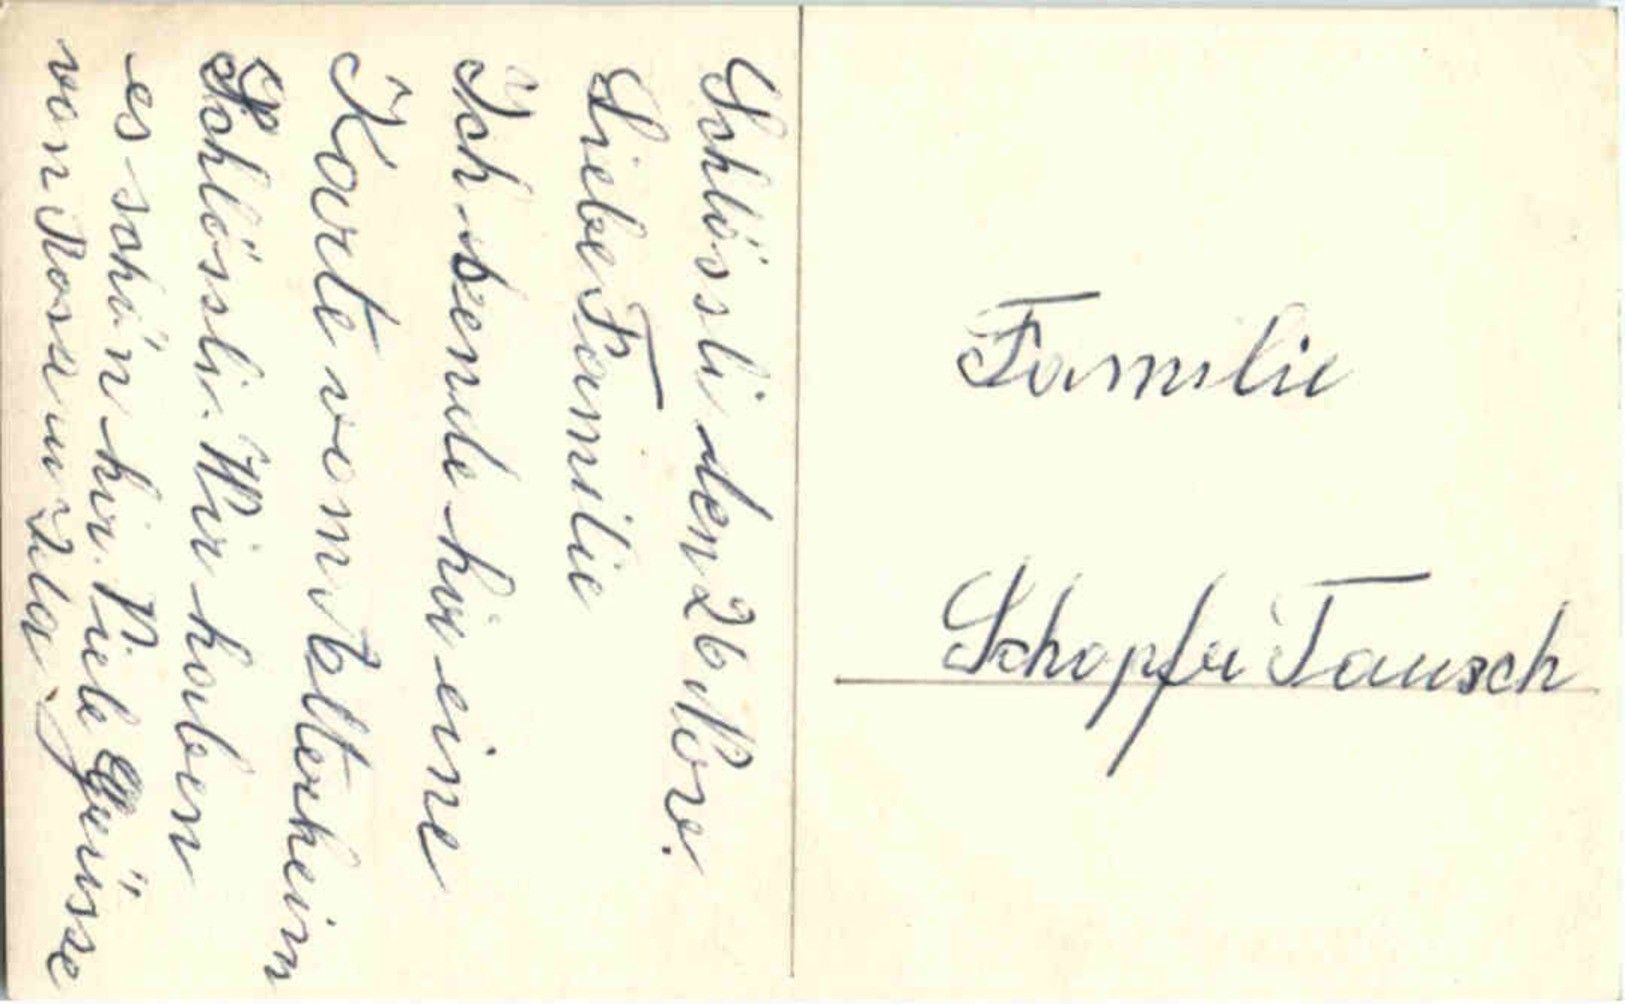 Schlössli den 26 Nov.
Liebe Familie
Ich sende hir eine
Karte vom Altersheim
Schlössli. Wir haben
es schön hir. Viele Grüsse
von Rosa u
Familie
Schopfer Tausch